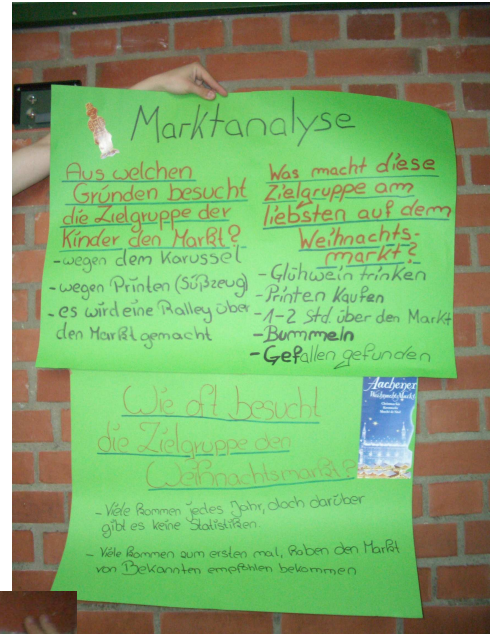 Marktanalyse
Aus welchen
Gründen besucht
die Zielgruppe der
Kinder den Markt?
-wegen dem Karussel
-wegen Printen (Süßzeug)
-es wird eine Ralley über
den Markt gemacht
Was macht diese
Zielgruppe am
liebsten auf dem
Weihnachts-
markt?
-Glühwein trinken
-Printen Kaufen
-1-2 Std. über den Markt
-Bummmeln
-Gefallen gefunden
Aachener
Weihnachts Markt
Wie oft besucht
die Zielgruppe den
Weihnachtsmarkt?
-Viele kommen jedes Jahr, doch darüber
gibt es keine Statistiken.
-Viele kommen zum ersten mal, haben den Markt
von Bekannten empfohlen bekommen